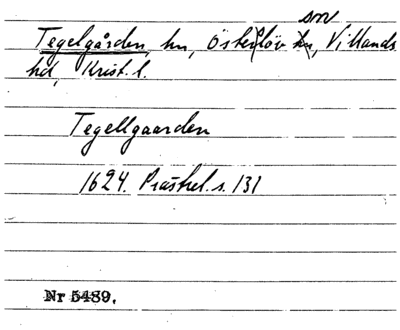 sn
Tegelgården, hn, Österslöv hn, Villands
hd, Krist. l.
Tegellgaarden
1624. Prästrel. s. 131
Nr 5489.